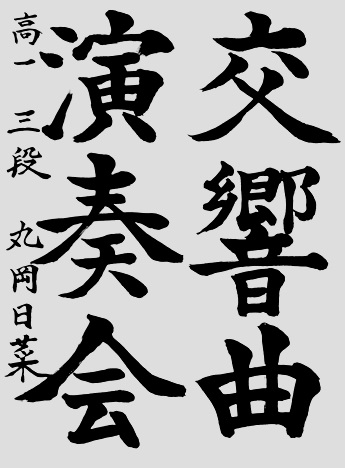 交響曲
演奏会
高一 三段 丸岡日菜